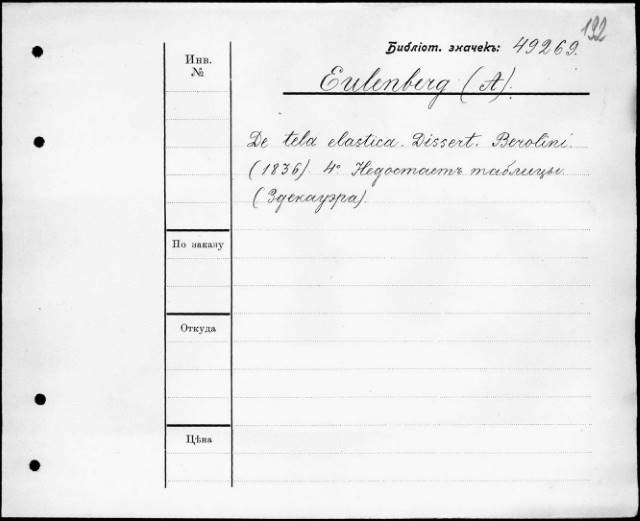 192
Библіот. значекъ: 49269.
Инв.
№
Eulenberg (A).
De tela elastica. Dissert. Berolini.
(1836). 4° Недостаетъ таблицы.
(Здекауэра).
По заказу
Откуда
Цѣна